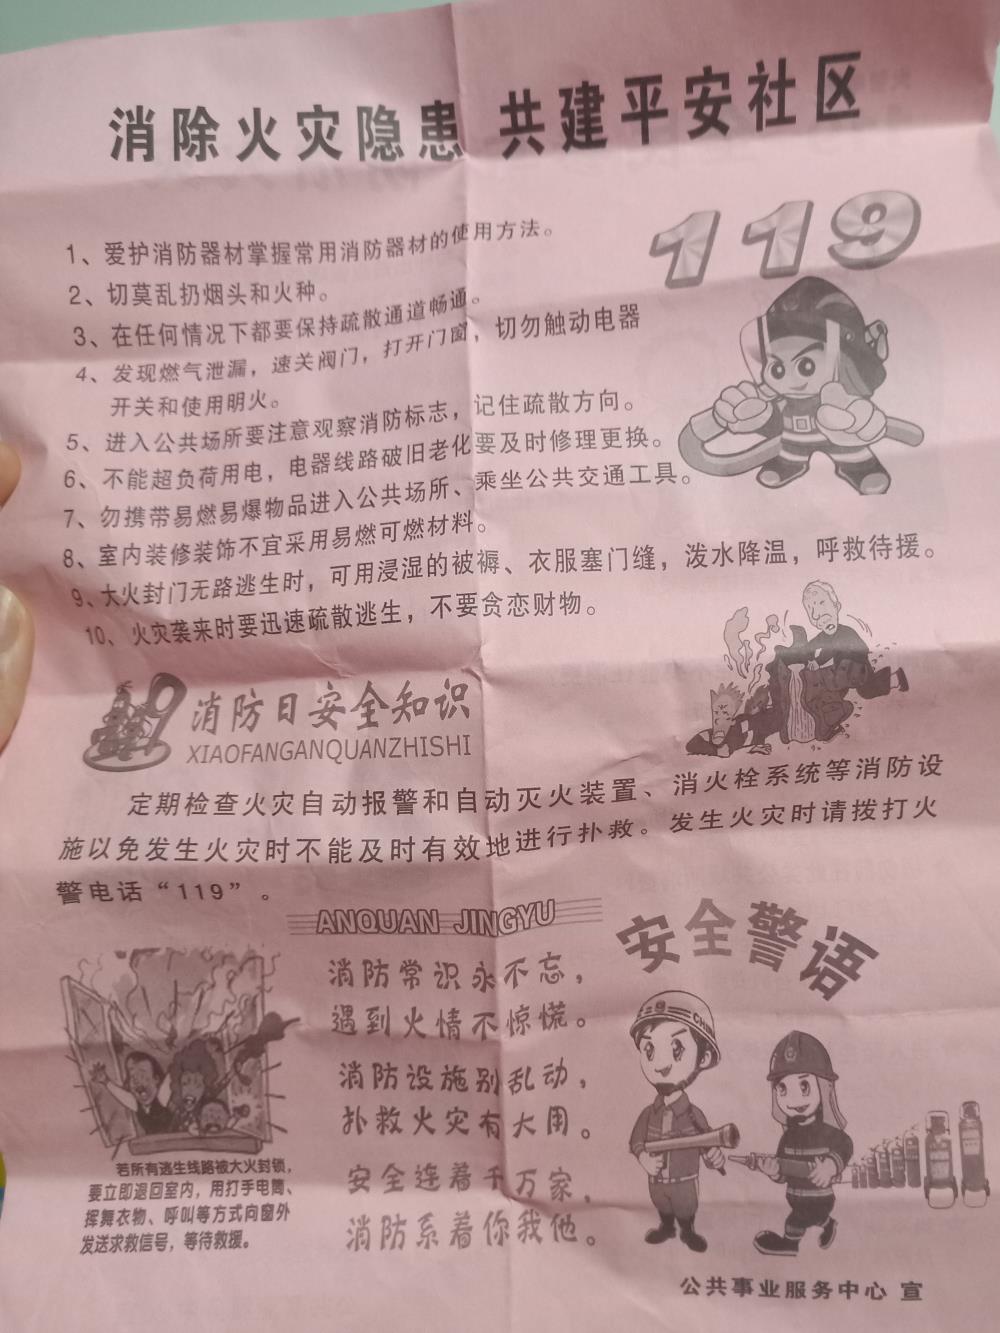 消除火灾隐患 共建平安社区
119
1、爱护消防器材掌握常用消防器材的使用方法。
2、切莫乱扔烟头和火种。
3、在任何情况下都要保持疏散通道畅通。
4、发现燃气泄漏，速关阀门，打开门窗，切勿触动电器
开关和使用明火。
5、进入公共场所要注意观察消防标志，记住疏散方向。
6、不能超负荷用电，电器线路破旧老化要及时修理更换。
7、勿携带易燃易爆物品进入公共场所、乘坐公共交通工具。
8、室内装修装饰不宜采用易燃可燃材料。
9、大火封门无路逃生时，可用浸湿的被褥、衣服塞门缝，泼水降温，呼救待援。
10、火灾袭来时要迅速疏散逃生，不要贪恋财物。
消防日安全知识
XIAOFANGANQUANZHISHI
定期检查火灾自动报警和自动灭火装置、消火栓系统等消防设
施以免发生火灾时不能及时有效地进行扑救。发生火灾时请拨打火
警电话“119”。
ANQUAN JINGYU
安全警语
消防常识永不忘，
遇到火情不惊慌。
消防设施别乱动，
扑救火灾有大用。
安全连着千万家，
消防系着你我他。
若所有逃生线路被大火封锁，
要立即退回室内，用打手电筒、
挥舞衣物、呼叫等方式向窗外
发送求救信号，等待救援。
公共事业服务中心 宣